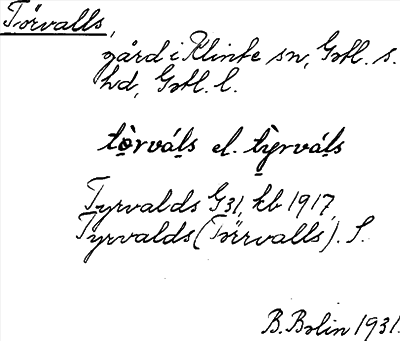 Törvalls,
gård i Klinte sn, Gotl. s.
hd, Gotl. l.
tòrváls el. tỳrváls
Tyrvalds G31, kb 1917,
Tyrvalds (Törrvalls). S.
B. Bolin 1931.